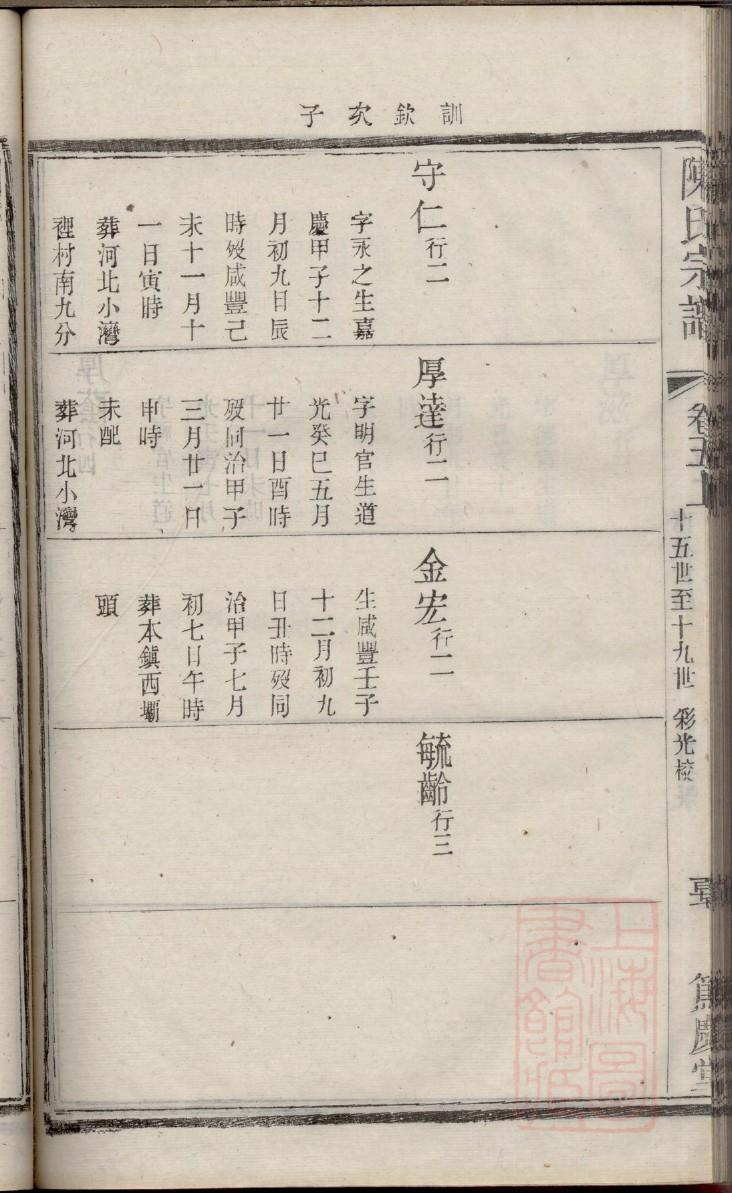 陳氏宗譜
卷五二
十五世至十九世 彩光校
篤慶堂
訓欽次子
守仁行二
字永之生嘉
慶甲子十二
月初九日辰
時歿咸豐己
未十一月十
一日寅時
葬河北小灣
裡村南九分
厚達行二
字明官生道
光癸巳五月
廿一日酉時
歿同治甲子
三月廿一日
申時
未配
葬河北小灣
金宏行二
生咸豐壬子
十二月初九
日丑時歿同
治甲子七月
初七日午時
葬本鎮西壩
頭
毓齡行三
上海圖
書館藏